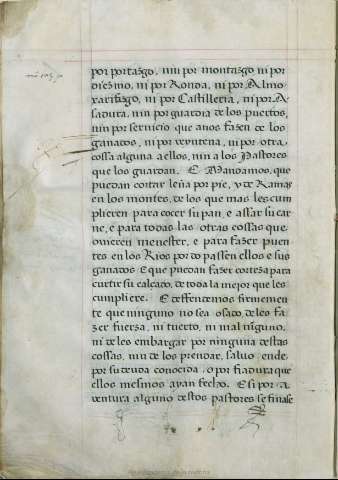 por portazgo, nin por montazgo ni por
diezmo, ni por Ronda, ni por Almo
xarifazgo, ni por Castilleria, ni por A
sadura, nin por guarda de los puertos,
nin por servicio que anos fazen de los
ganados, ni por veyntena, ni por otra
cossa alguna a ellos, nin a los Pastores
que los guardan. E Mandamos, que
puedan cortar leña por pie, y de Ramas
en los montes, de los que mas les cum
plieren para cocer su pan, e assar su car
ne, e para todas las otras cossas que
ovieren menester, e para fazer puen
tes en los Rios por do passen ellos e sus
ganados E que puedan fazer corteza para
curtir su calçado, de toda la mejor que les
cumpliere. E deffendemos firmemen
te que ninguno no sea osado, de les fa
zer fuerza, ni tuerto, ni mal ninguno,
ni de les embargar por ninguna destas
cossas, nin de los prendar, salvo ende
por su deuda conocida, o por fiadura que
ellos mesmos ayan fecho. E si por a
ventura alguno destos pastores se finase